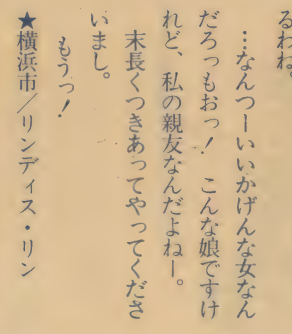 るわね。
…なんつーいいかげんな女なん
だろっもおっ！　こんな娘ですけ
れど、私の親友なんだよねー。
末長くつきあってやってくださ
いまし。
もうっ！
★横浜市／リンディス・リン